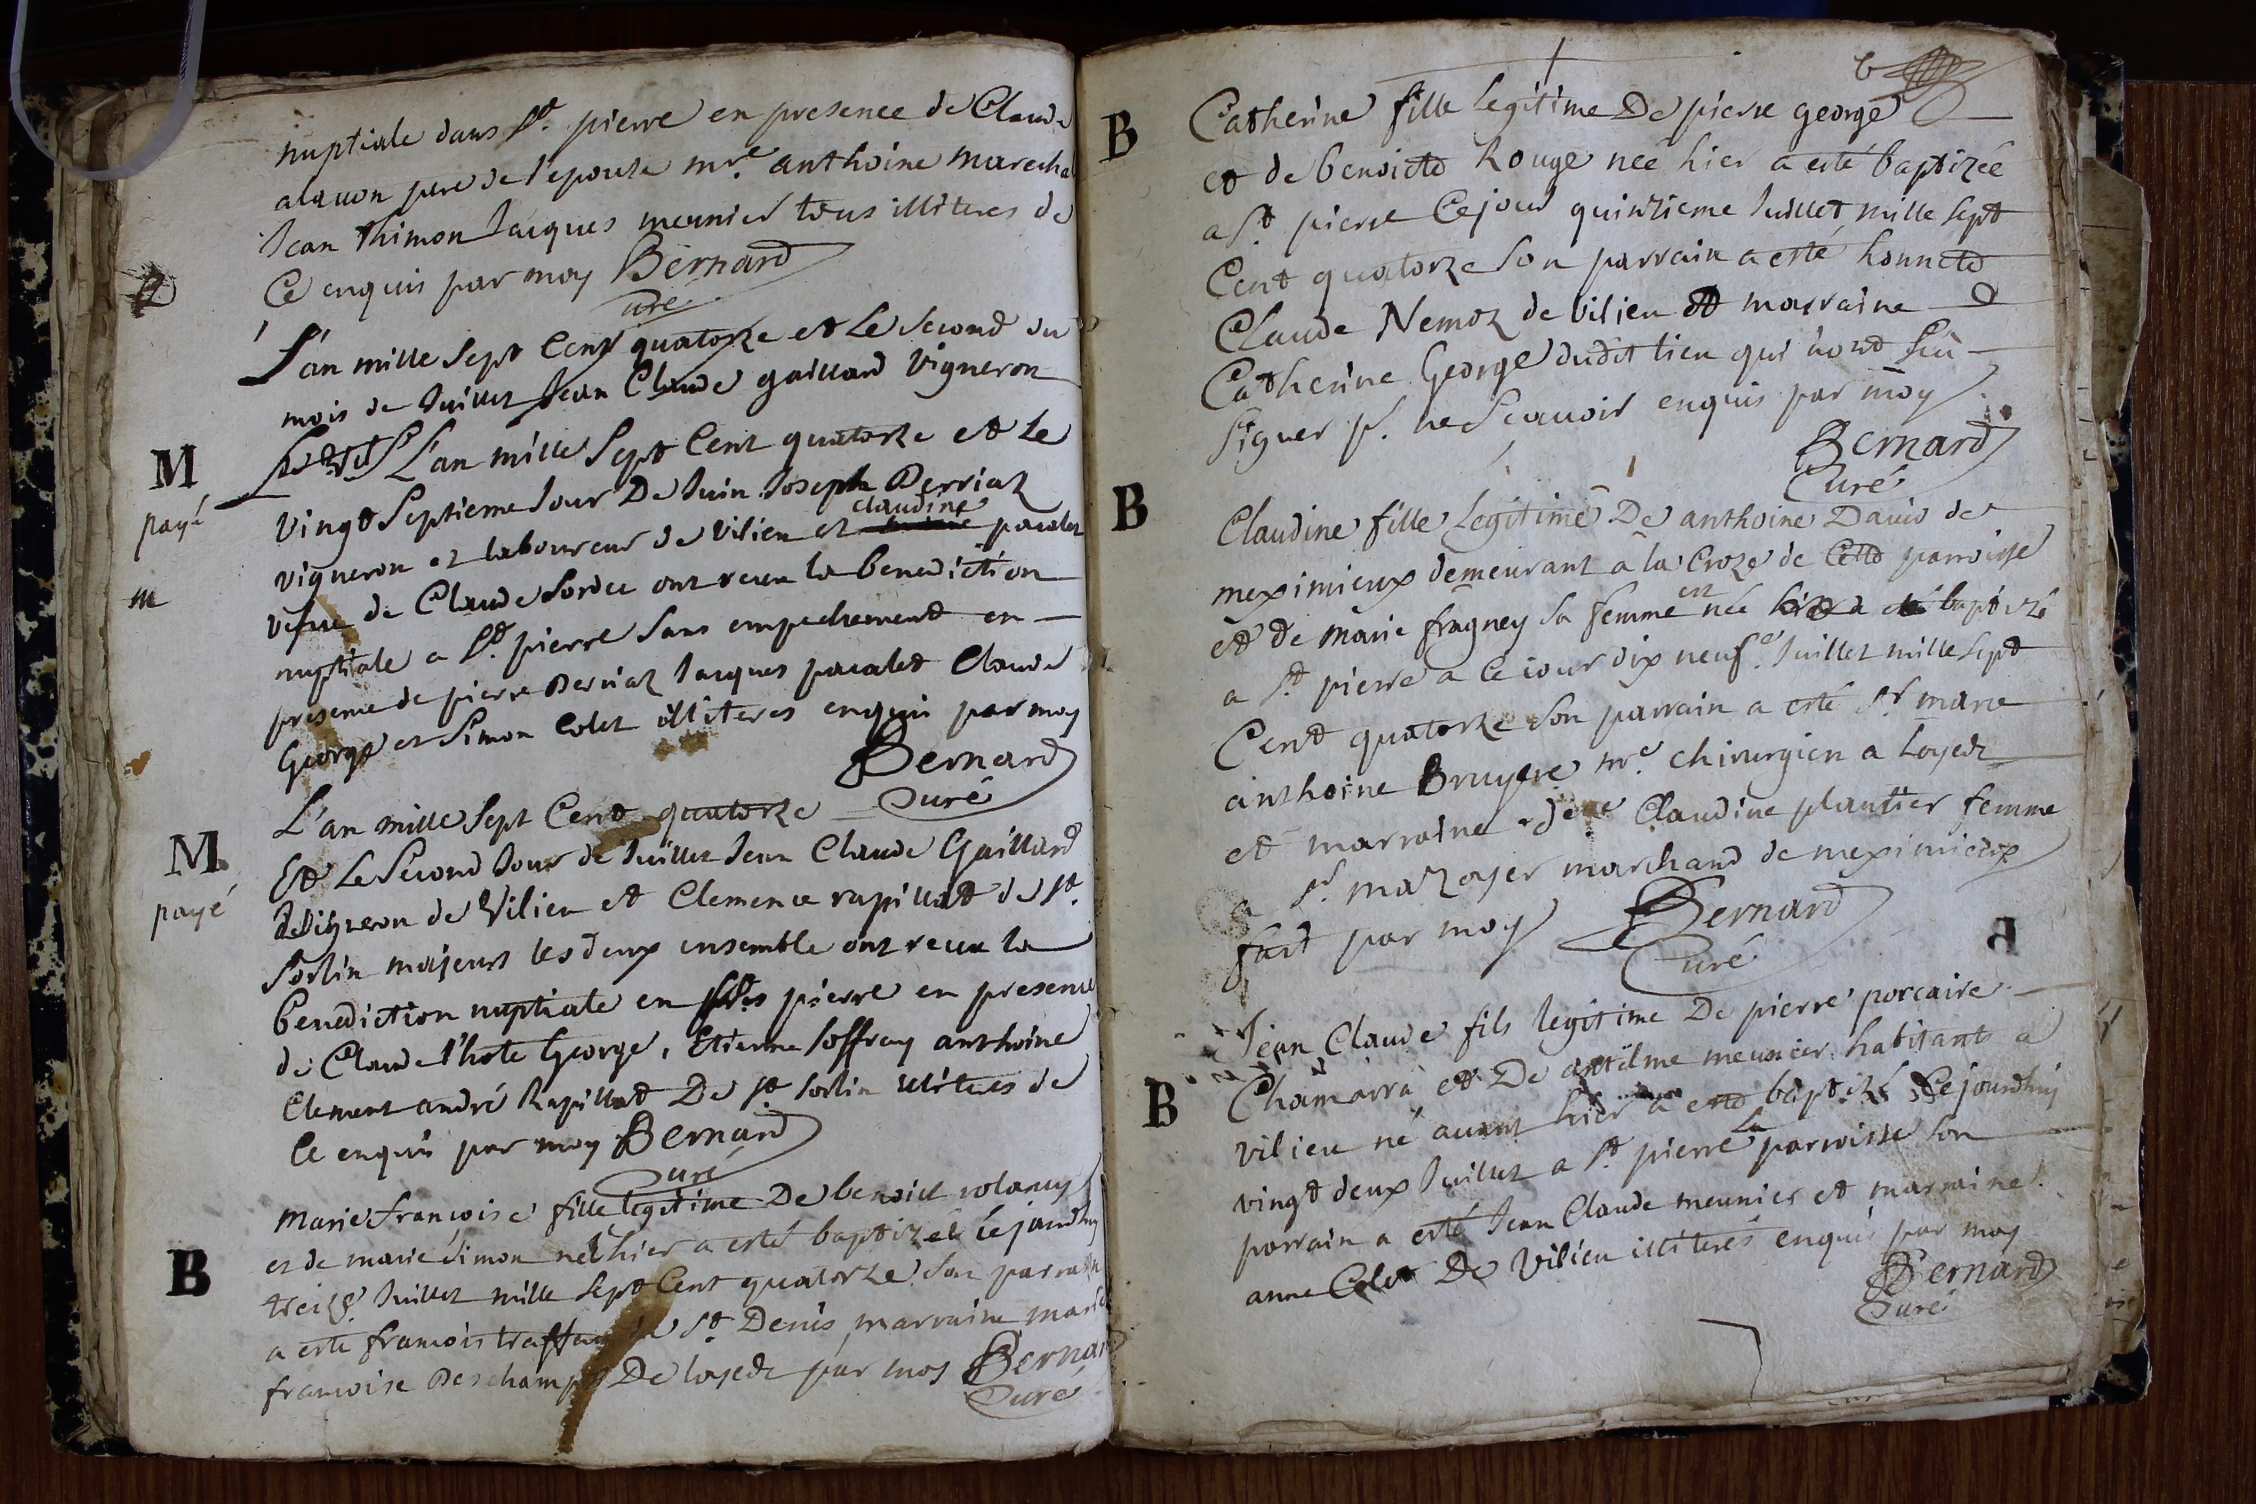 nuptiale dans st. pierre en presence de Claude
alauon pere de l'epouse mre. anthoine marecha
Jean thimon Jacques meunier tous illiteres de
Ce enquis par moy Bernard
curé
L'an mille sept Cent quatorze et le second du
mois de Juillet Jean Claude gaillard vigneron
M
L'an mille sept Cent quatorze et le
payé
vingt septieme Jour De Juin Joseph Derriaz
claudine
vigneron et laboureur de vilieu et pacalet
m
vefue de Claude sordet ont receu la benediction
nuptiale a st. pierre sans empechement en
presence de pierre Derriaz Jacques pacalet Claude
George et simon Colet illiteres enquis par moy
Bernard
Curé
L'an mille sept Cent quatorze
M
Et Le second Jour de Juillet Jean Claude Gaillard
payé
vigneron de vilieu et Clemence rapillat de st.
sorlin majeurs les deux ensemble ont receu la
benediction nuptiale en pierre en presence
de Claude l'hote George, Etienne soffray anthoine
Clement andré Rapillat De st sorlin illiteres de
Ce enquis par moy Bernard
Curé
Marie francoise fille legitime De benoict rolancy
et de marie simon neé hier a esté baptizeé Cejourdhuy
B
treize Juillet mille sept Cent quatorze son parrain
a esté francois st. Denis marraine marie
francoise Deschamps De loyete par moy Bernar
Curé
6
B
Catherine fille legitime De pierre george
et de benoicte Rouge neé hier a esté baptizée
a st pierre Cejour quinzieme Juillet mille sept
Cent quatorze son parrain a esté honnete
Claude Nemoz de vilieu et marraine
Catherine George dudit lieu qui n'ont sçu
signer p. ne sçauoir enquis par moy
Bernard
Curé
B
Claudine fille Legitime De anthoine Dauid de
meximieux demeurant a la Croze de Cette parroisse
est
et de marie fragney sa femme née baptizé
a st pierre a ce iour dix neufe. Juillet mille sept
Cent quatorze son parrain a esté sr. marie
anthoine Bruyere mre. chirurgien a loyete
et marraine Claudine plantier femme
a sr. mazoyer marchand de meximieux
fait par moy Bernard
Curé
Jean Claude fils legitime De pierre porcaire
Chamarra et De antelme meunier habitants a
B
vilieu né auant hier a esté baptizé Cejourdhuy
La
vingt deux Juillet a st pierre parroisse son
parrain a esté Jean Claude meunier et marraine
anne Colet De vilieu illiterés enquis par moy
Bernard
Curé